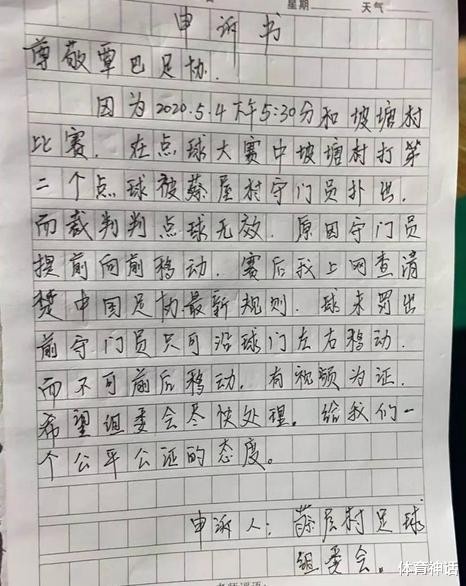 星期 天气
申诉书
尊敬覃巴足协.
因为2020.5.4下午5:30分和坡塘村
比赛. 在点球大赛中坡塘村打第
二个点球被蔡屋村守门员扑出.
而裁判判点球无效. 原因守门员
提前向前移动. 赛后我上网查清
楚中国足协最新规则. 球未罚出
前守门员只可沿球门左右移动.
而不可前后移动. 有视频为证.
希望组委会尽快处理。给我们一
个公平公证的态度。
申诉人: 蔡屋村足球
组委会。
老师评语:
体育神话